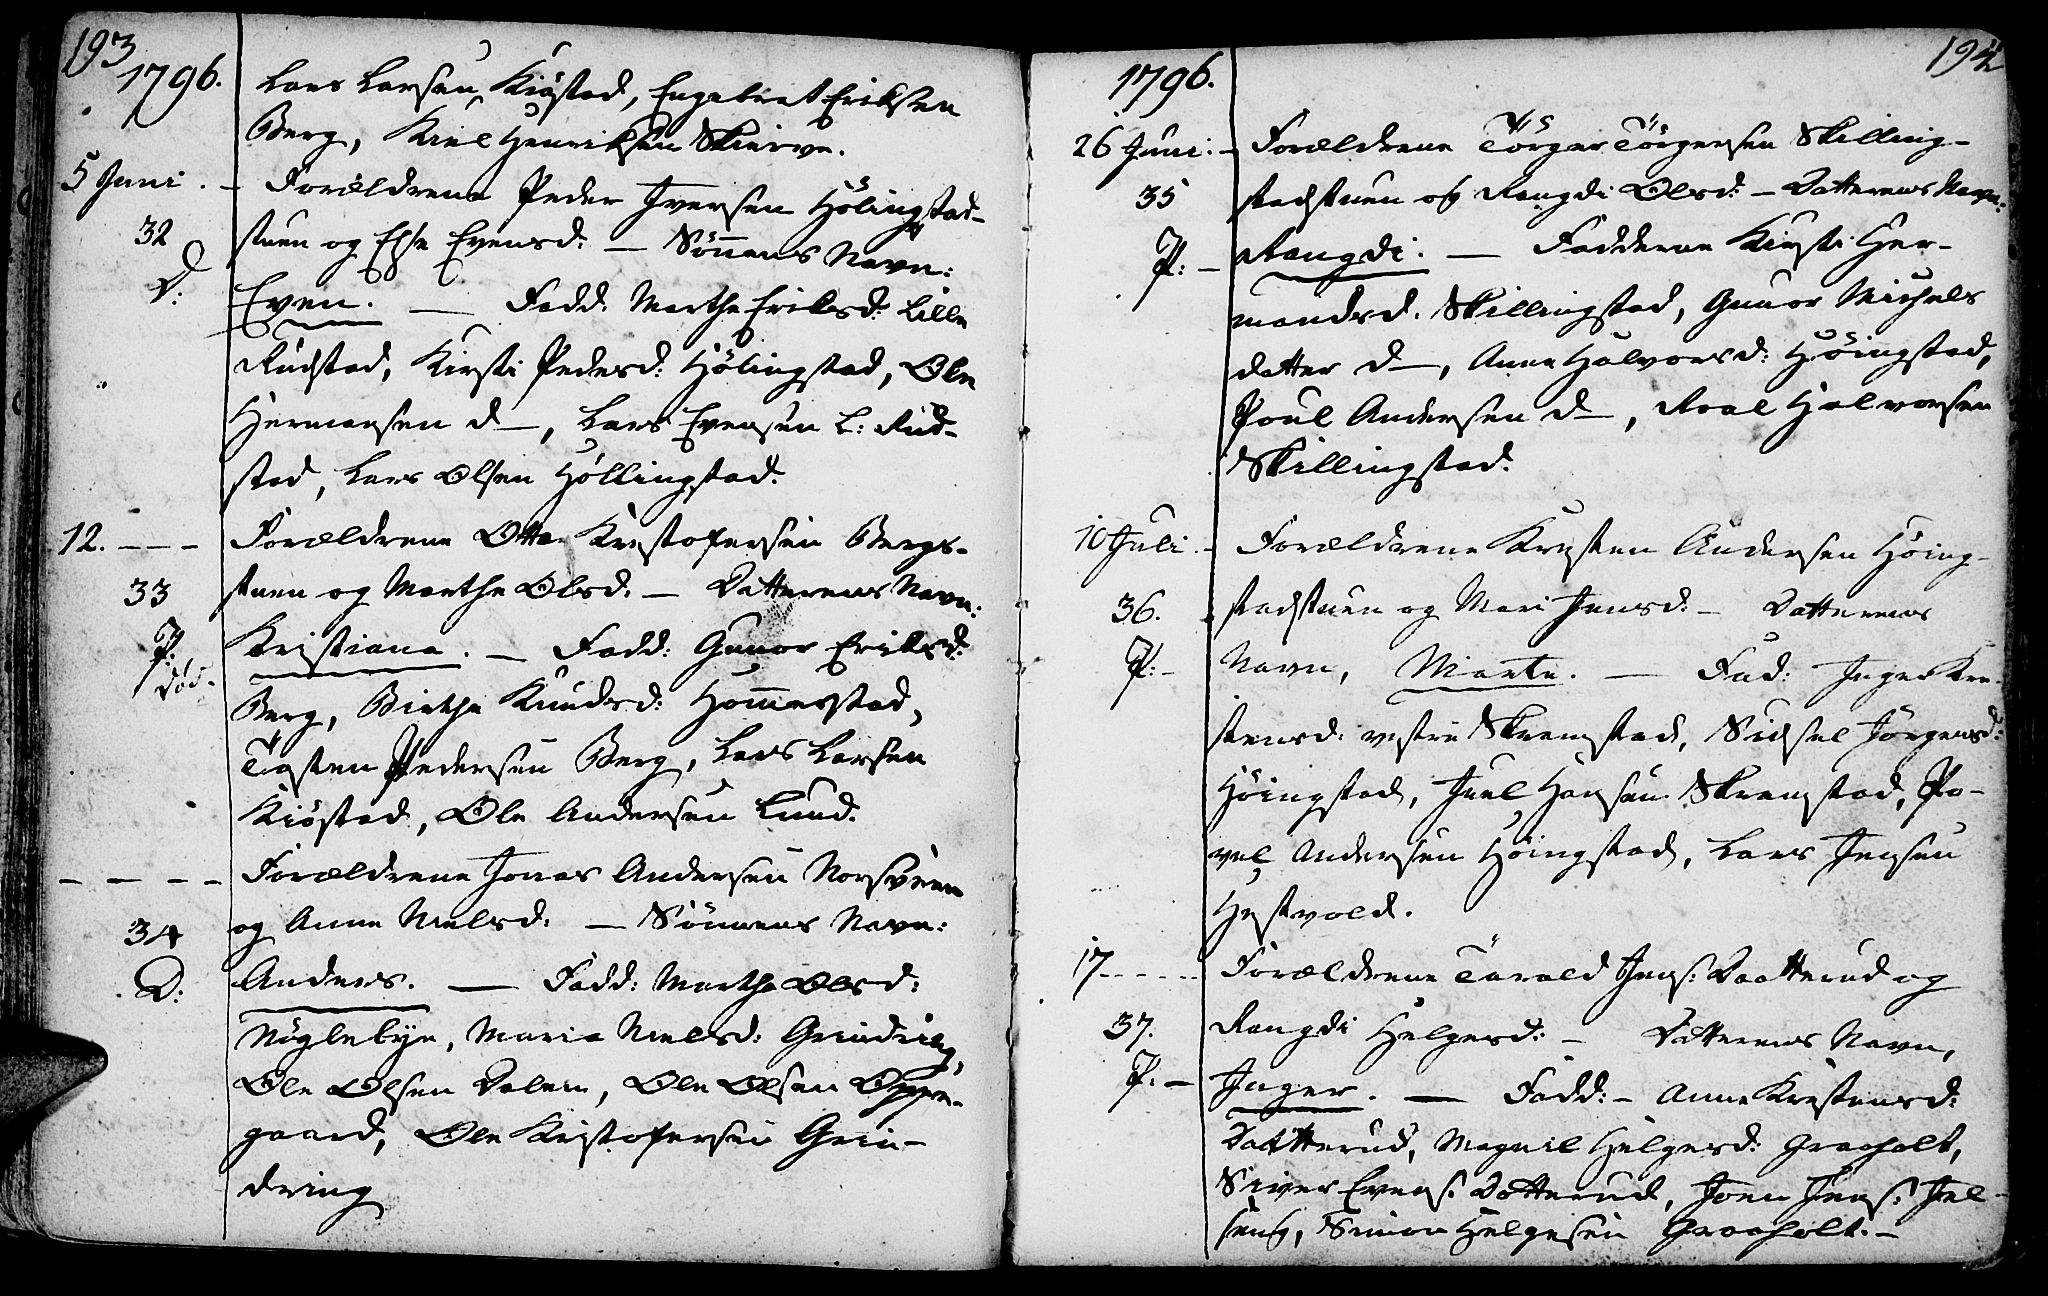 193
1796.
Lars Larsen Kiøstad, Engebret Eriksen
Berg, Kiel Henriksen Skierve.
5 Juni. – Forældrene Peder Iversen Hölingstad-
32 stuen og Else Evensd: – Sönnens Navn:
D: Even. — Fadd: Marthe Eriksd: Lille
Rudstad, Kirsti Pedersd: Hölingstad, Ole
Hermansen d–, Lars Evensen L: Rud-
stad, Lars Olsen Höllingstad.
12. – – – Forældrene Otte Kristofersen Bergs-
33 stuen og Marthe Olsd: – Datterens Navn:
P: Kristiana. – Fadd: Gunor Eriksd:
død. Berg, Birthe Knudsd: Hommerstad,
Tosten Pedersen Berg, Lars Larsen
Kiöstad, Ole Andersen Lund.
– – – – Forældrene Jonas Andersen Norsveen
34 og Anne Nielsd: – Sönnens Navn:
D: Anders. — Fadd: Marthe Olsd:
Nöglebye, Marie Nielsd: Grindring,
Ole Olsen Dalen, Ole Olsen Oppe-
gaard, Ole Kristofersen Grin-
dring
194
1796.
26 Juni. – Forældrene Törger Törgersen Skilling-
35 stadstuen og Rangdi Olsd: – Datterens Navn:
P: – Rangdi. — Fadderne Kirsti Her-
mandsd. Skillingstad, Gunor Michels
datter d–, Anne Halvorsd: Höingstad,
Poul Andersen d–, Roal Halvorsen
Skillingstad.
10 Juli. – Forældrene Kresten Andersen Höing-
36. stadstuen og Mari Jensd: – Datterens
P: – Navn, Marte. — Fad: Inger Kre-
stensd: vestre Skremstad, Sidsel Jörgensd:
Höingstad, Juel Hansen Skremstad, Po-
vel Andersen Höingstad, Lars Jensen
Hestvold.
17 – – – – – Forældrene Tarald Jens: Daatterud og
37. Rangdi Helgesd: – Datterens Navn,
P. – Inger. — Fadd: – Anne Krestensd:
Daatterud, Magnil Helgesd: Graaholt,
Siver Evens: Dotterud, Joen Jens: Jel-
seng, Simon Helgesen Graaholt. –